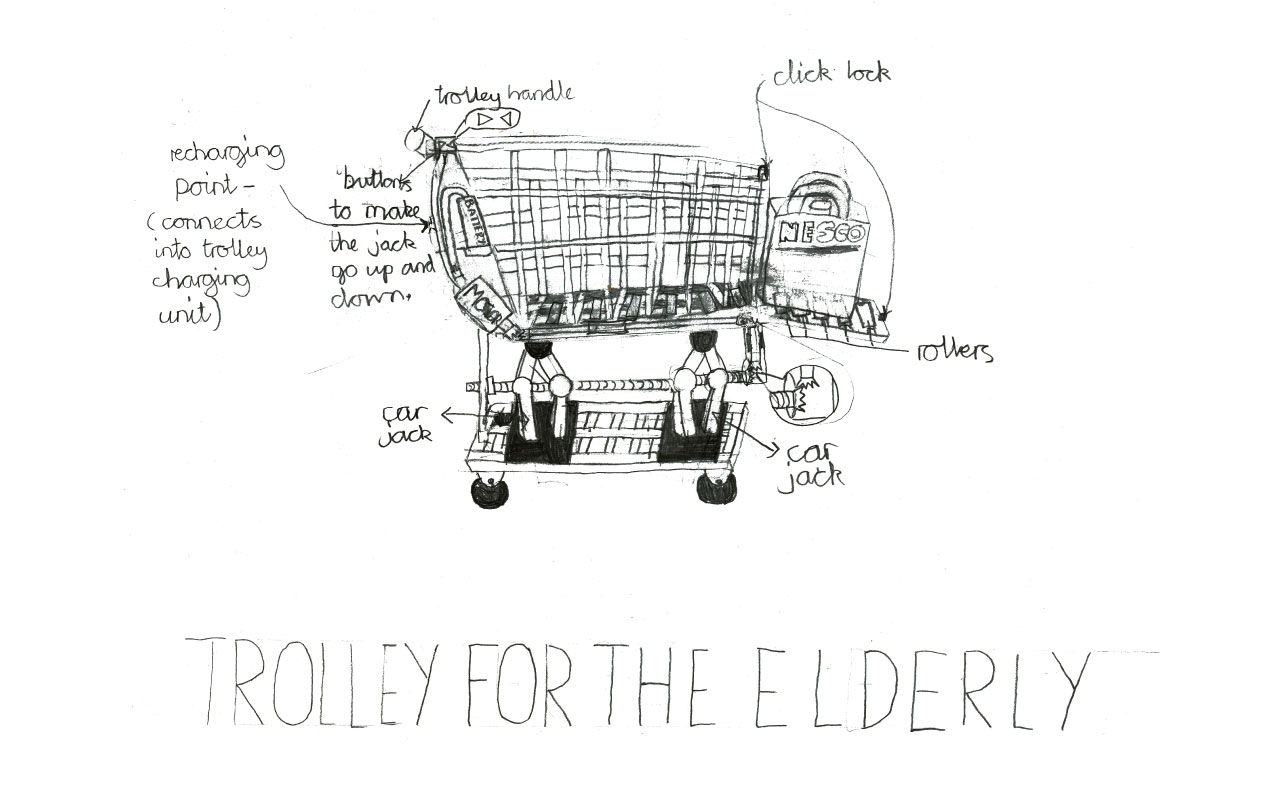 click lock
trolley handle
recharging
point -
(connects
into trolley
charging
unit)
buttons
to make
the jack
go up and
down.
BATTERY
MOTOR
NESCO
rollers
car
jack
car
jack
TROLLEY FOR THE ELDERLY